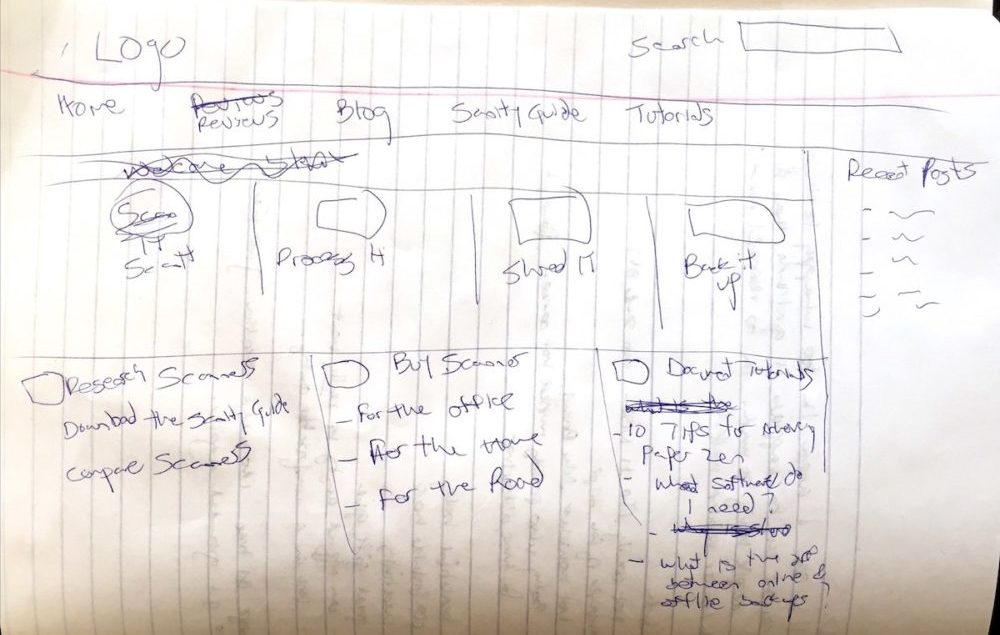 Logo
Search
Home
Reviews
Blog
Scanity Guide
Tutorials
Recent Posts
Scan
IT
Scan It
Process It
Shred IT
Back it
up
Research Scanners
Download the Scanity Guide
Compare Scanners
Buy Scanner
- For the office
- For the Home
- For the Road
Document Tutorials
- 10 Tips for
Paper Zen
- What Software do
I need?
- what is the
between online &
offline backups?